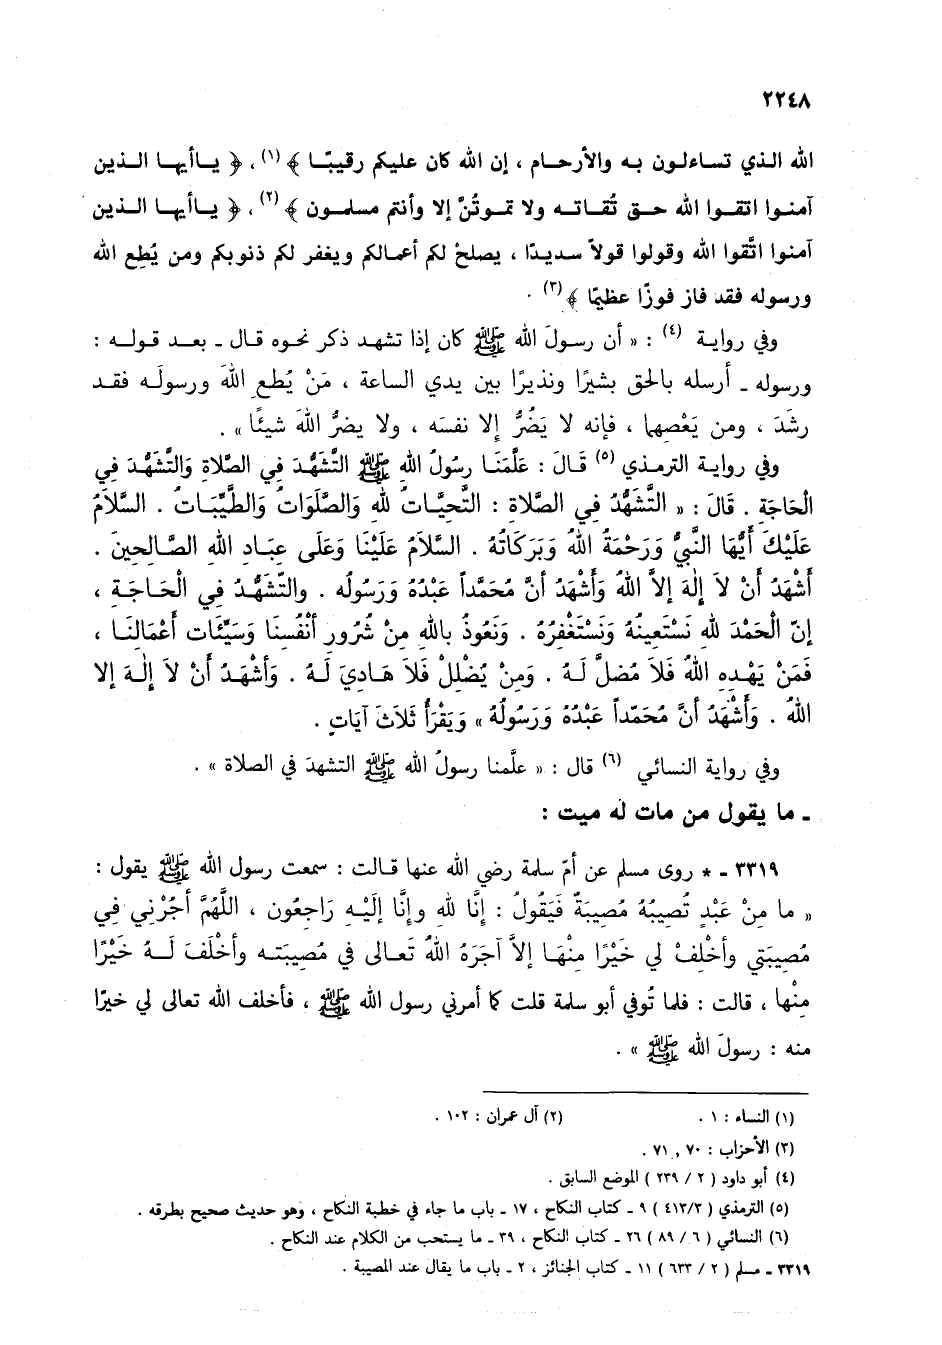 ٢٢٤٨
الله الذي تساءلون به والأرحام ، إن الله كان عليكم رقيبًا ﴾ (١) ، ﴿ ياأيها الذين
آمنوا اتقوا الله حق تُقاته ولا تموتُنَّ إلا وأنتم مسلمون ﴾ (٢) ، ﴿ ياأيها الذين
آمنوا اتَّقوا الله وقولوا قولاً سديدًا ، يصلحْ لكم أعمالكم ويغفر لكم ذنوبكم ومن يُطِع الله
ورسوله فقد فاز فوزًا عظيمًا ﴾ (٣) .
وفي رواية (٤) : « أن رسولَ الله ﷺ كان إذا تشهد ذكر نحوه قال ـ بعد قوله :
ورسوله ـ أرسله بالحق بشيرًا ونذيرًا بين يدي الساعة ، مَنْ يُطع اللهَ ورسولَه فقد
رشَدَ ، ومن يَعْصِهما ، فإنه لا يَضُرُّ إلا نفسَه ، ولا يضرُّ اللهَ شيئًا » .
وفي رواية الترمذي (٥) قَالَ : عَلَّمَنَا رسُولُ اللهِ ﷺ التَّشَهُّدَ فِي الصَّلاةِ وَالتَّشَهُّدَ فِي
الْحَاجَةِ . قَالَ : « التَّشَهُّدُ فِي الصَّلاة : التَّحِيَّاتُ للهِ وَالصَّلَوَاتُ وَالطَّيِّبَاتُ . السَّلاَمُ
عَلَيْكَ أَيُّهَا النَّبِيُّ وَرَحْمَةُ اللهُ وَبَرَكَاتُهُ . السَّلاَمُ عَلَيْنَا وَعَلَى عِبَادِ اللهِ الصَّالِحِينَ .
أَشْهَدُ أَنْ لاَ إِلَهَ إِلاَّ اللهُ وَأَشْهَدُ أَنَّ مُحَمَّداً عَبْدُهُ وَرَسُولُه . والتَّشَهُّدُ فِي الْحَاجَةِ ،
إِنّ الْحَمْدَ للهِ نَسْتَعِينُهُ وَنَسْتَغْفِرُهُ . وَنَعُوذُ بِاللهِ مِنْ شُرُورِ أنْفُسِنَا وَسَيِّئَاتِ أَعْمَالنَا ،
فَمَنْ يَهْدِهِ اللهُ فَلاَ مُضِلَّ لَهُ . وَمِنْ يُضْلِلْ فَلاَ هَادِيَ لَهُ . وَأشْهَدُ أَنْ لاَ إِلَهَ إلا
اللهُ . وَأَشْهَدُ أَنَّ مُحَمّداً عَبْدُهُ وَرَسُولُهُ » وَيَقْرَأُ ثَلاَثَ آيَاتٍ .
وفي رواية النسائي (٦) قال : « علَّمنا رسولُ الله ﷺ التشهدَ في الصلاة » .
ـ ما يقول من مات له ميت :
٣٣١٩ ـ * روى مسلم عن أمّ سلمة رضي الله عنها قالت : سمعت رسول الله ﷺ يقول :
« ما مِنْ عَبْدٍ تُصِيبُهُ مُصِيبَةٌ فَيَقُولُ : إِنَّا للهِ وإِنَّا إلَيْهِ رَاجِعُون ، اللَّهُمَّ أجُرْنِي فِي
مُصِيبَتِي وأخْلِفْ لي خَيْرًا مِنْهَا إلاَّ آجَرَهُ اللهُ تَعالى في مُصِيبَتِه وأخْلَفَ لَهُ خَيْرًا
مِنْها ، قالت : فلما تُوفي أبو سلمة قلت كما أمرني رسول الله ﷺ ، فأخلف الله تعالى لي خيرًا
منه : رسولَ الله ﷺ » .
(١) النساء : ١ . (٢) آل عمران : ١٠٢ .
(٣) الأحزاب : ٧٠ , ٧١ .
(٤) أبو داود ( ٢ / ٢٣٩ ) الموضع السابق .
(٥) الترمذي ( ٤١٣/٣ ) ٩ ـ كتاب النكاح ، ١٧ ـ باب ما جاء في خطبة النكاح ، وهو حديث صحيح بطرقه .
(٦) النسائي ( ٦ / ٨٩ ) ٢٦ ـ كتاب النكاح ، ٣٩ ـ ما يستحب من الكلام عند النكاح .
٣٣١٩ ـ مسلم ( ٢ / ٦٣٣ ) ١١ ـ كتاب الجنائز ، ٢ ـ باب ما يقال عند المصيبة .